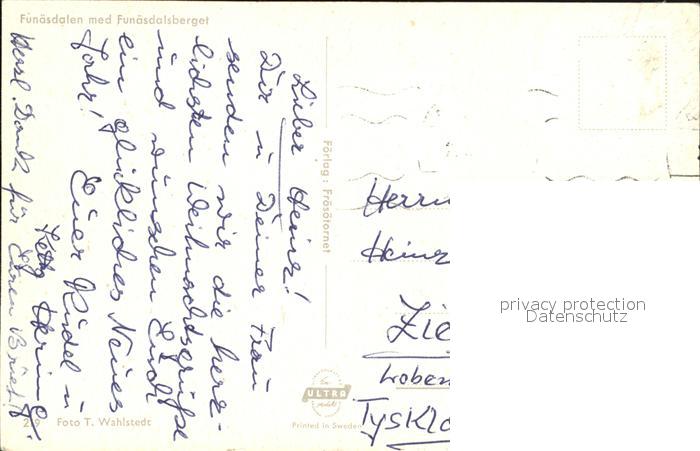 Funäsdalen med Funäsdalsberget
Lieber Heinz!
Dir u Deiner Frau
senden wir die herz-
lichsten Weihnachtsgrüße
und wünschen Euch
ein glückliches Neues
Jahr! Euer Rudel u
Herzl. Dank für Euren Brief!
Förlag: Frösötornet
Herrn
Heinz
Zie
Loben
TysKla
ULTRA
219 Foto T. Wahlstedt
Printed in Sweden
privacy protection
Datenschutz